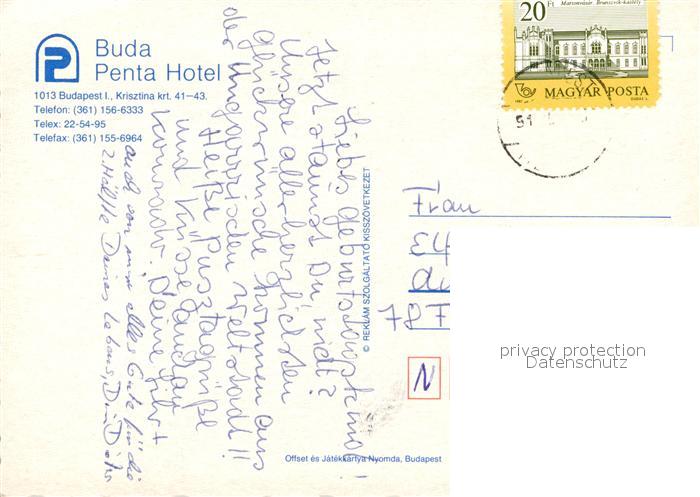 Buda
Penta Hotel
1013 Budapest I., Krisztina krt. 41–43.
Telefon: (361) 156-6333
Telex: 22-54-95
Telefax: (361) 155-6964
20 Ft
Martonvásár, Brunszvik-kastély
MAGYAR POSTA
91
Liebes Geburtstagskind!
Jetzt staunst Du, nicht?
Unsere allerherzlichsten
Glückwünsche kommen aus
der ungarischen Weltstadt!!
Heiße Pusztagrüße
und Küsse
Deine
auch von mir alles Gute für die
2. Hälfte Deines Lebens, Dein
© REKLÁM SZOLGÁLTATÓ KISSZÖVETKEZET
Frau
787
N
Offset és Játékkártya Nyomda, Budapest
privacy protection
Datenschutz